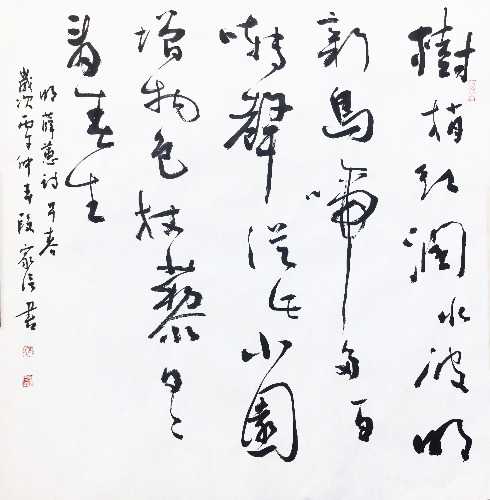 樹梢紅潤水波明
新鳥啼多百
囀聲從此小園
增物色杖藜日日
看春生
明薛蕙詩早春
歲次丙午仲春段家信書